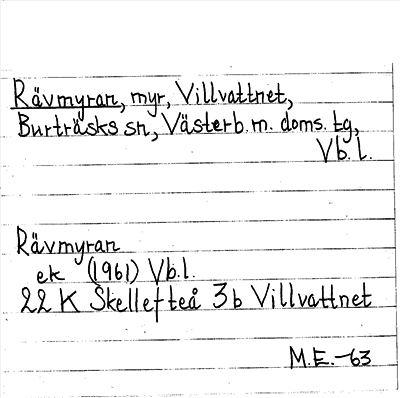 Rävmyran, myr, Villvattnet,
Burträsks sn, Västerb. m. doms. tg,
Vb. l.
Rävmyran
ek (1961) Vb. l.
22 K Skellefteå 3b Villvattnet
M.E.-63